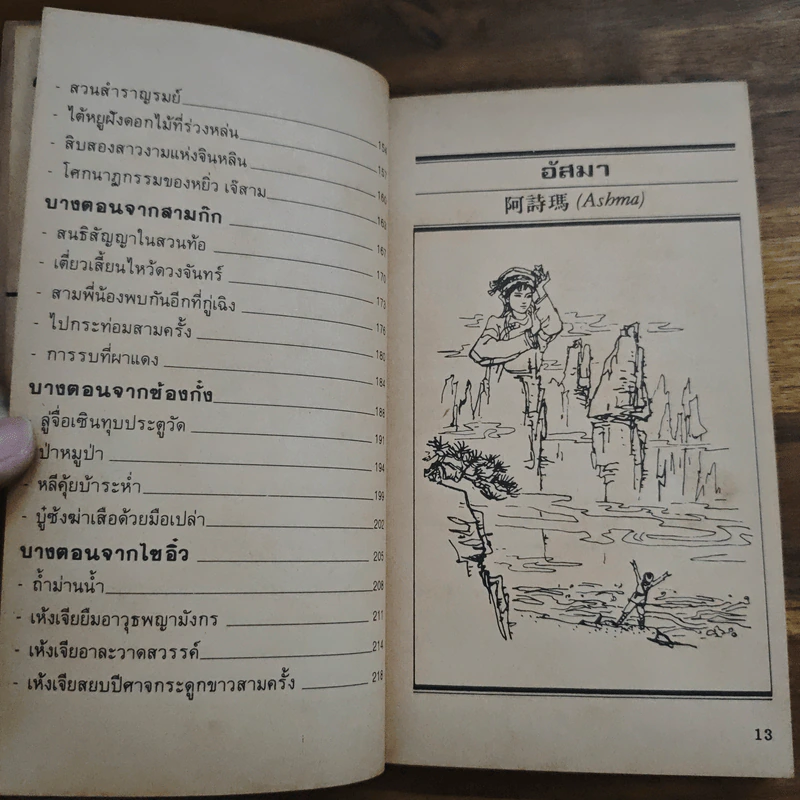 - สวนสำราญรมย์ 154
- ไต้หยูฝังดอกไม้ที่ร่วงหล่น 157
- สิบสองสาวงามแห่งจินหลิน 160
- โศกนาฏกรรมของหยิ่ว เจ๊สาม 163
บางตอนจากสามก๊ก 167
- สนธิสัญญาในสวนท้อ 170
- เตี่ยวเสี้ยนไหว้ดวงจันทร์ 173
- สามพี่น้องพบกันอีกที่กู่เฉิง 176
- ไปกระท่อมสามครั้ง 180
- การรบที่ผาแดง 184
บางตอนจากซ้องกั๋ง 188
- ลู่จื่อเซินทุบประตูวัด 191
- ป่าหมูป่า 194
- หลีคุ้ยบ้าระห่ำ 199
- บู๊ซ้งฆ่าเสือด้วยมือเปล่า 202
บางตอนจากไซอิ๋ว 205
- ถ้ำม่านน้ำ 208
- เห้งเจียยืมอาวุธพญามังกร 211
- เห้งเจียอาละวาดสวรรค์ 214
- เห้งเจียสยบปีศาจกระดูกขาวสามครั้ง 218
อัสมา
阿詩瑪 (Ashma)
13